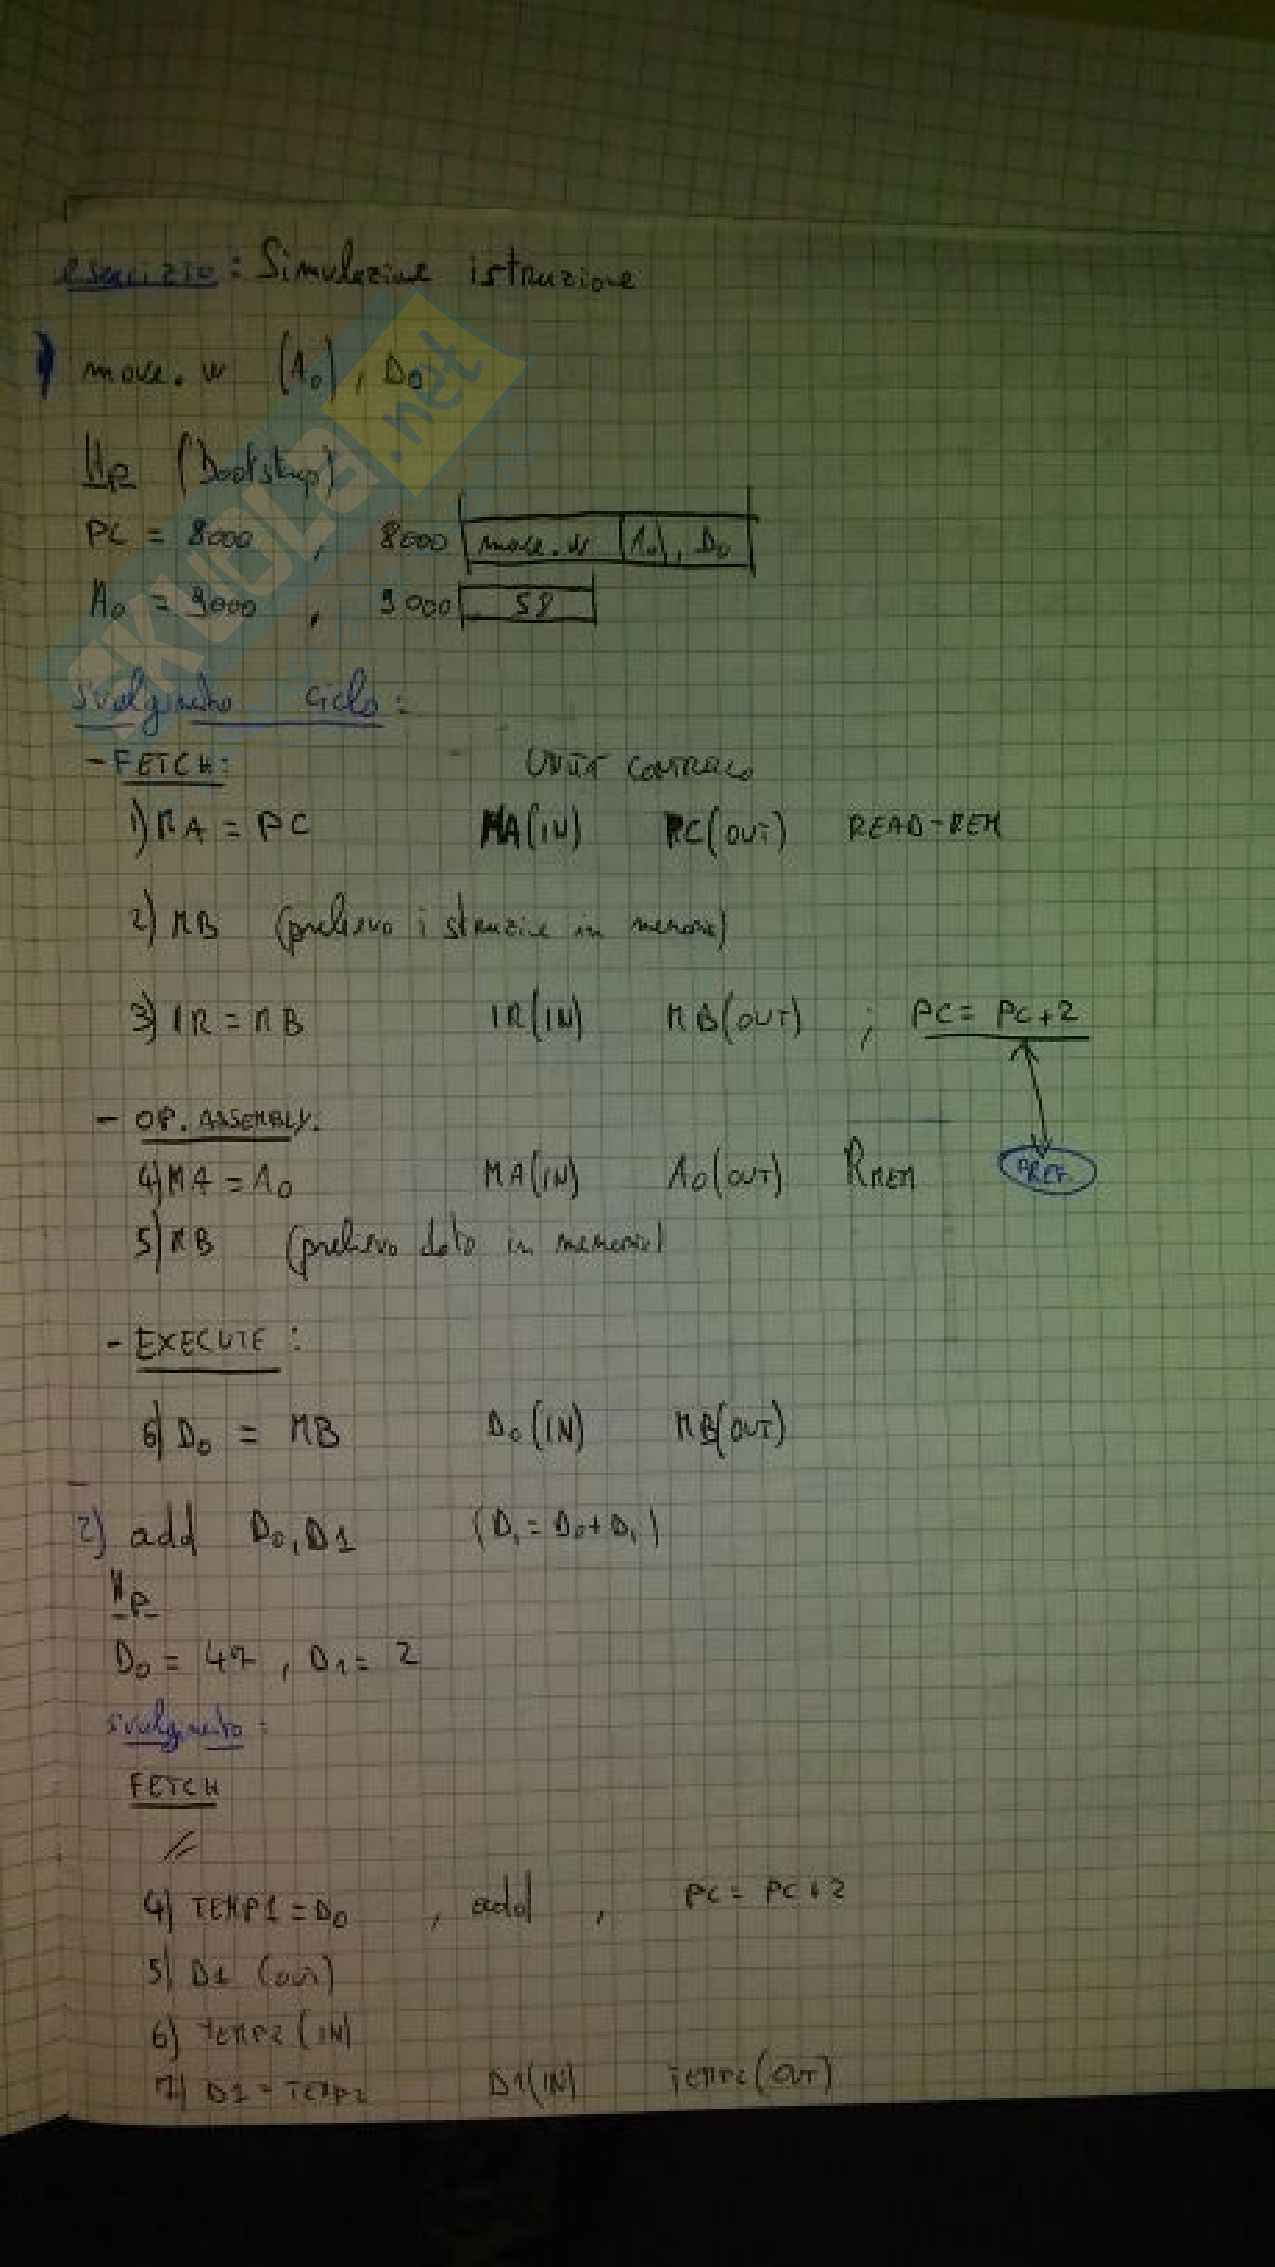 esercizio: Simulazione istruzione
1) move.w (A0), D0
Hp (Bootstrap)
PC = 8000 , 8000 move.w (A0), D0
A0 = 9000 , 9000 58
SKUOLA.net
svolgimento ciclo:
- FETCH: UNITÀ CONTROLLO
1) MA = PC MA(IN) PC(OUT) READ-MEM
2) MB (prelievo istruzione in memoria)
3) IR = MB IR(IN) MB(OUT) ; PC = PC+2
- OP. ASSEMBLY: PREF
4) MA = A0 MA(IN) A0(OUT) RMEM
5) MB (prelievo dato in memoria)
- EXECUTE:
6) D0 = MB D0(IN) MB(OUT)
2) add D0, D1 (D1 = D0 + D1)
Hp
D0 = 47 , D1 = 2
svolgimento:
FETCH
//
4) TEMP1 = D0 , add , PC = PC + 2
5) D1 (OUT)
6) TEMP2 (IN)
7) D1 = TEMP2 D1(IN) TEMP2(OUT)